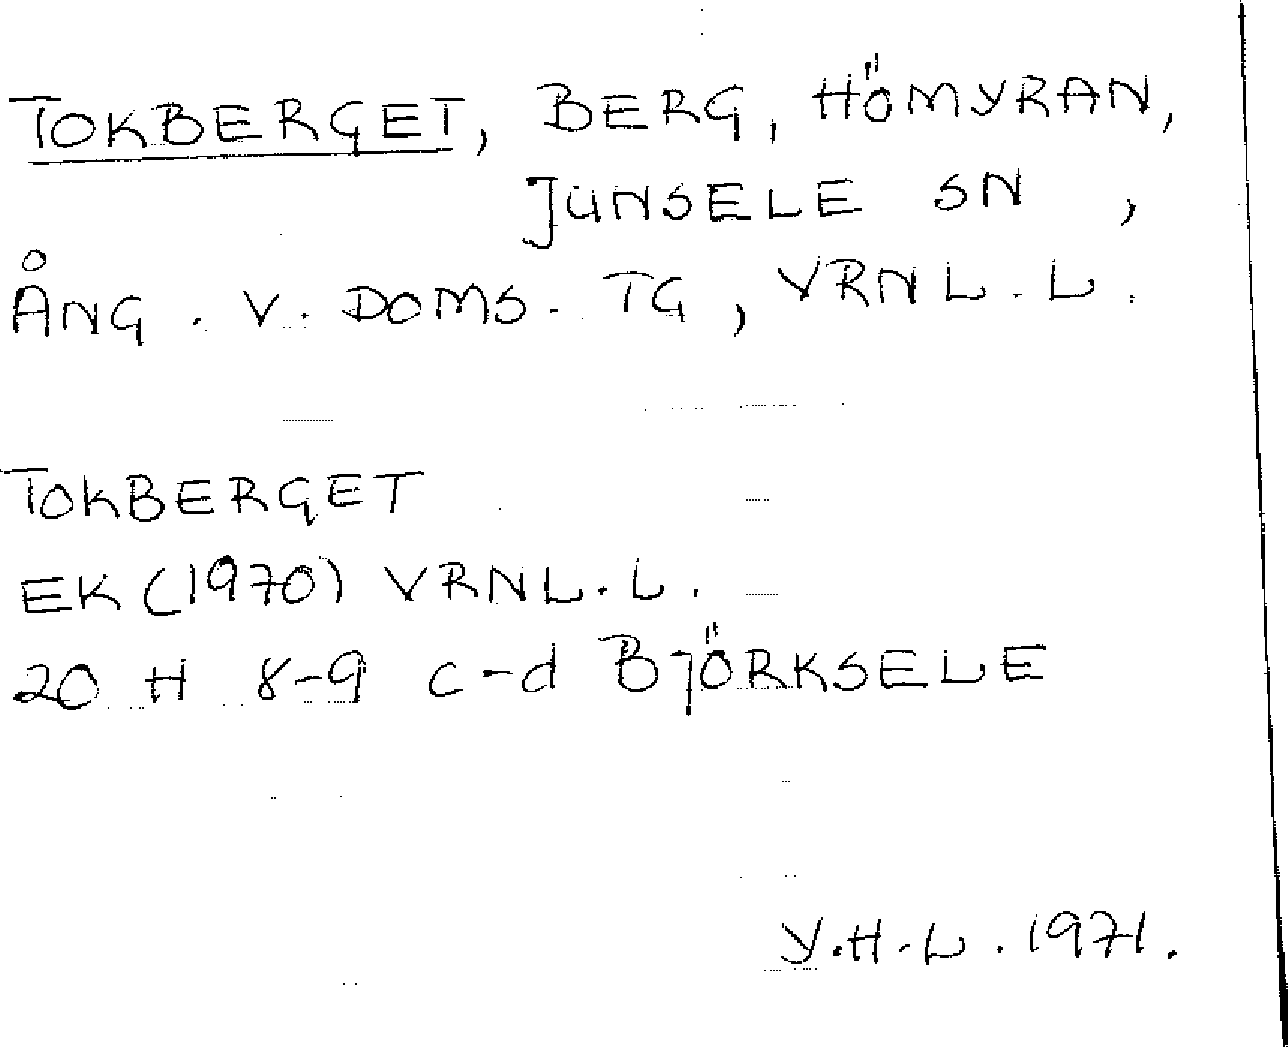 TOKBERGET, BERG, HÖMYRAN,
JUNSELE SN,
ÅNG. V. DOMS. TG, VRNL.L.
TOKBERGET
EK (1970) VRNL.L.
20 H 8-9 c-d BJÖRKSELE
Y.H.L. 1971.